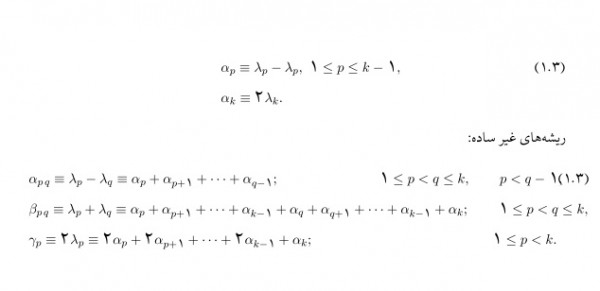 α_p ≡ λ_p − λ_p, ۱ ≤ p ≤ k − ۱, (۱.۳)
α_k ≡ ۲λ_k.
ریشه‌های غیر ساده:
α_{pq} ≡ λ_p − λ_q ≡ α_p + α_{p+۱} + ⋯ + α_{q−۱}; ۱ ≤ p < q ≤ k, p < q − ۱(۱.۳)
β_{pq} ≡ λ_p + λ_q ≡ α_p + α_{p+۱} + ⋯ + α_{k−۱} + α_q + α_{q+۱} + ⋯ + α_{k−۱} + α_k; ۱ ≤ p < q ≤ k,
γ_p ≡ ۲λ_p ≡ ۲α_p + ۲α_{p+۱} + ⋯ + ۲α_{k−۱} + α_k; ۱ ≤ p < k.